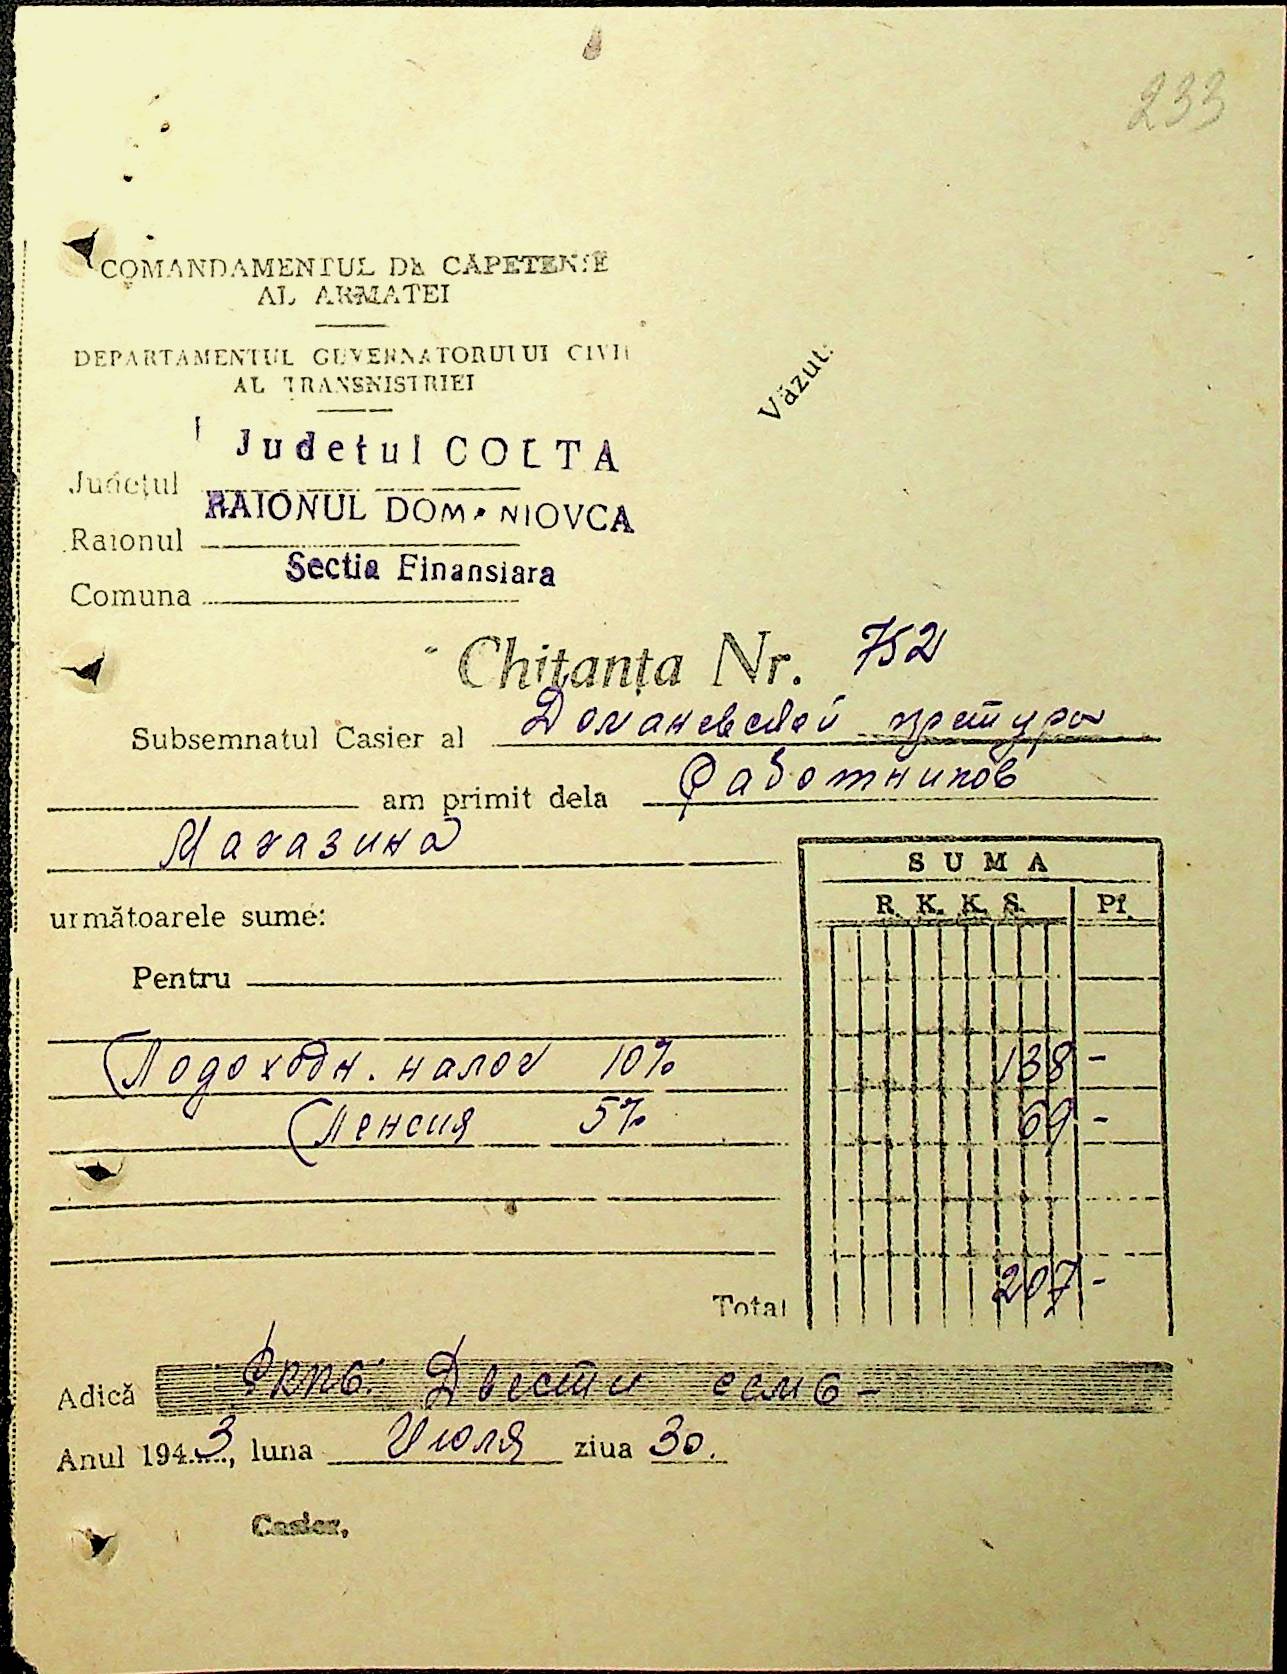 233
COMANDAMENTUL DE CĂPETENIE
AL ARMATEI
DEPARTAMENTUL GUVERNATORULUI CIVIL
AL TRANSNISTRIEI
Văzut:
Judetul COLTA
Județul
RAIONUL DOMANIOVCA
Raionul
Sectia Finansiara
Comuna
Chitanța Nr. 752
Subsemnatul Casier al Доманевской претуры
am primit dela Работников
Магазина
SUMA
următoarele sume:
R. K. K. S. Pf.
Pentru
Подоходн. налог 10% 138 -
Пенсия 5% 69 -
Total 207 -
Adică Двести семь -
Anul 1943, luna Июля ziua 30.
Casier,